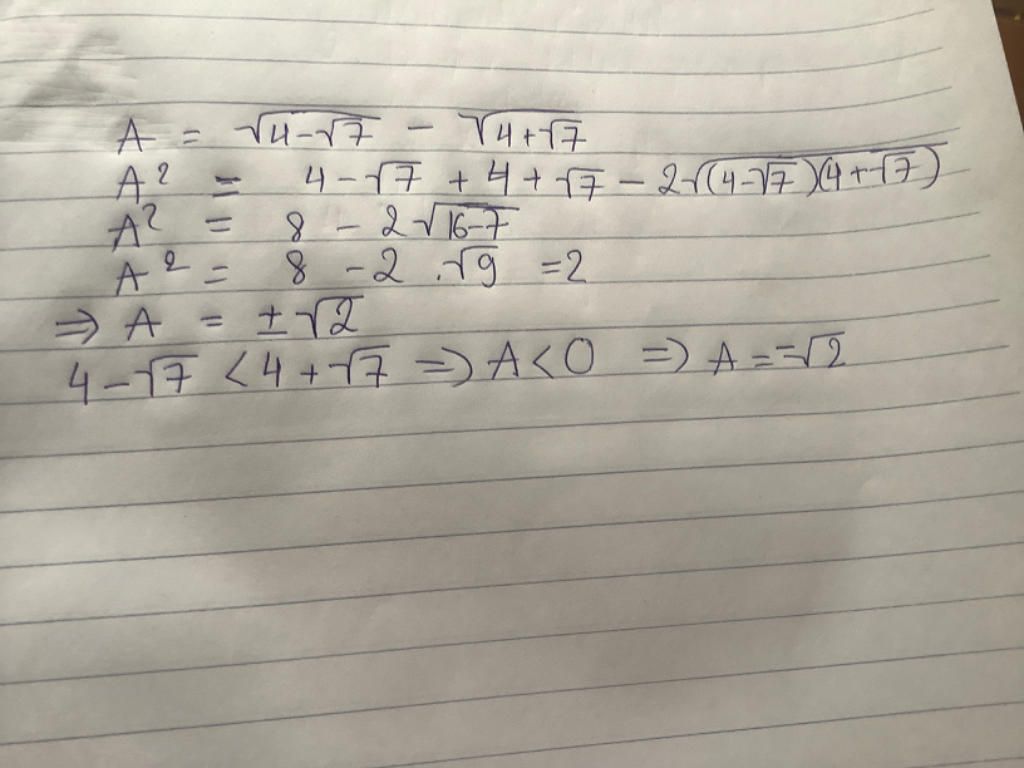 A = √(4-√7) - √(4+√7)
A² = 4-√7 + 4+√7 - 2√((4-√7)(4+√7))
A² = 8 - 2√(16-7)
A² = 8 - 2 .√9 = 2
⇒ A = ±√2
4-√7 < 4+√7 ⇒ A<0 ⇒ A = -√2